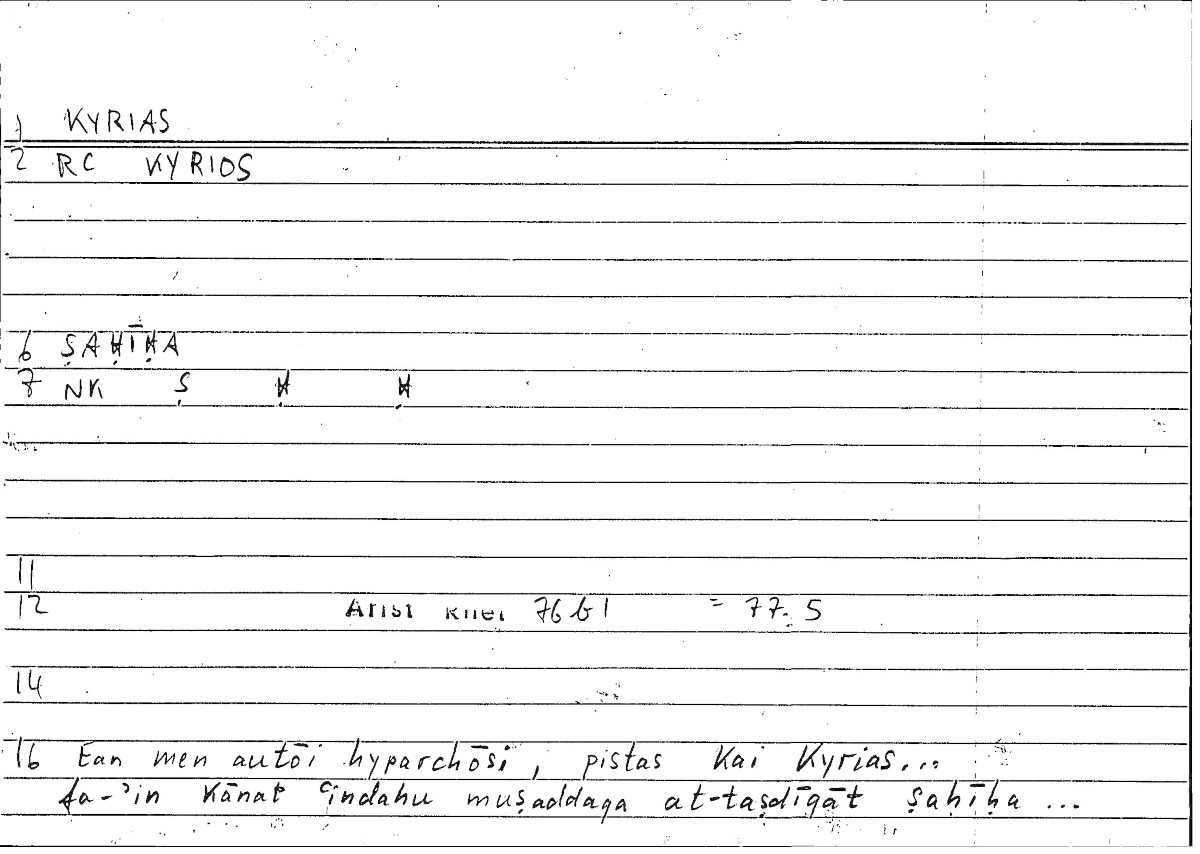 1 KYRIAS
2 RC KYRIOS
6 ṢAḤĪḤA
7 NK Ṣ Ḥ Ḥ
11
12 Arist Rhet 76b1 = 77.5
14
16 Ean men autōi hyparchōsi, pistas kai kyrias...
fa-ʾin kānat ʿindahu muṣaddaqa at-taṣdīqāt ṣaḥīḥa ...